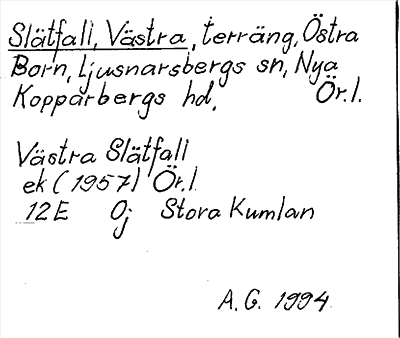 Slätfall, Västra, terräng, Östra
Born, Ljusnarsbergs sn, Nya
Kopparbergs hd, Ör.l.
Västra Slätfall
ek (1957) Ör.l.
12E 0j Stora Kumlan
A.G. 1994